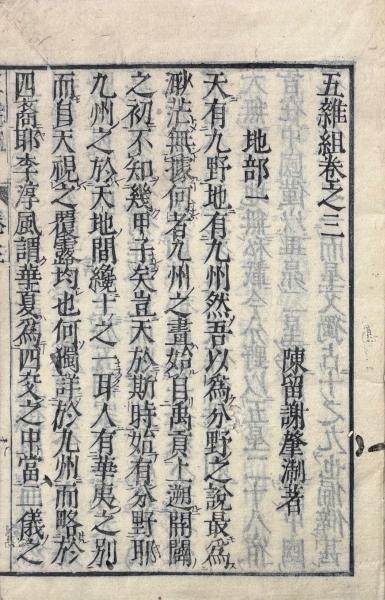 五雜組卷之三
陳留謝肇淛著
地部一
天有九野地有九州然吾以為分野之說最為
渺茫無據何者九州之畫始自禹貢上遡開闢
之初不知幾甲子矣豈天於斯時始有分野耶
九州之於天地間纔十之一耳人有華夷之別
而自天視之覆露均也何獨詳於九州而略於
四裔耶李淳風謂華夏為四交之中當二儀之